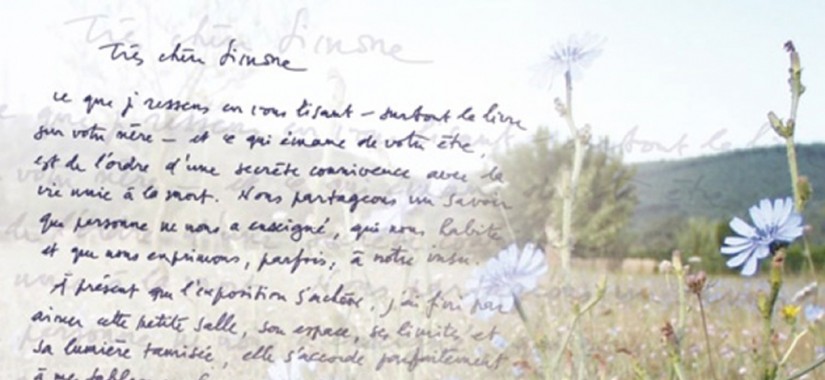 Très chère Simone
ce que j'ressens en vous lisant – surtout le livre
sur votre mère – et ce qui émane de votre être,
est de l'ordre d'une secrète connivence avec la
vie unie à la mort. Nous partageons un savoir
que personne ne nous a enseigné, qui nous habite
et que nous exprimons, parfois, à notre insu.
A présent que l'exposition s'achève, j'ai fini par
aimer cette petite salle, son espace, ses limites et
sa lumière tamisée, elle s'accorde parfaitement
à mes